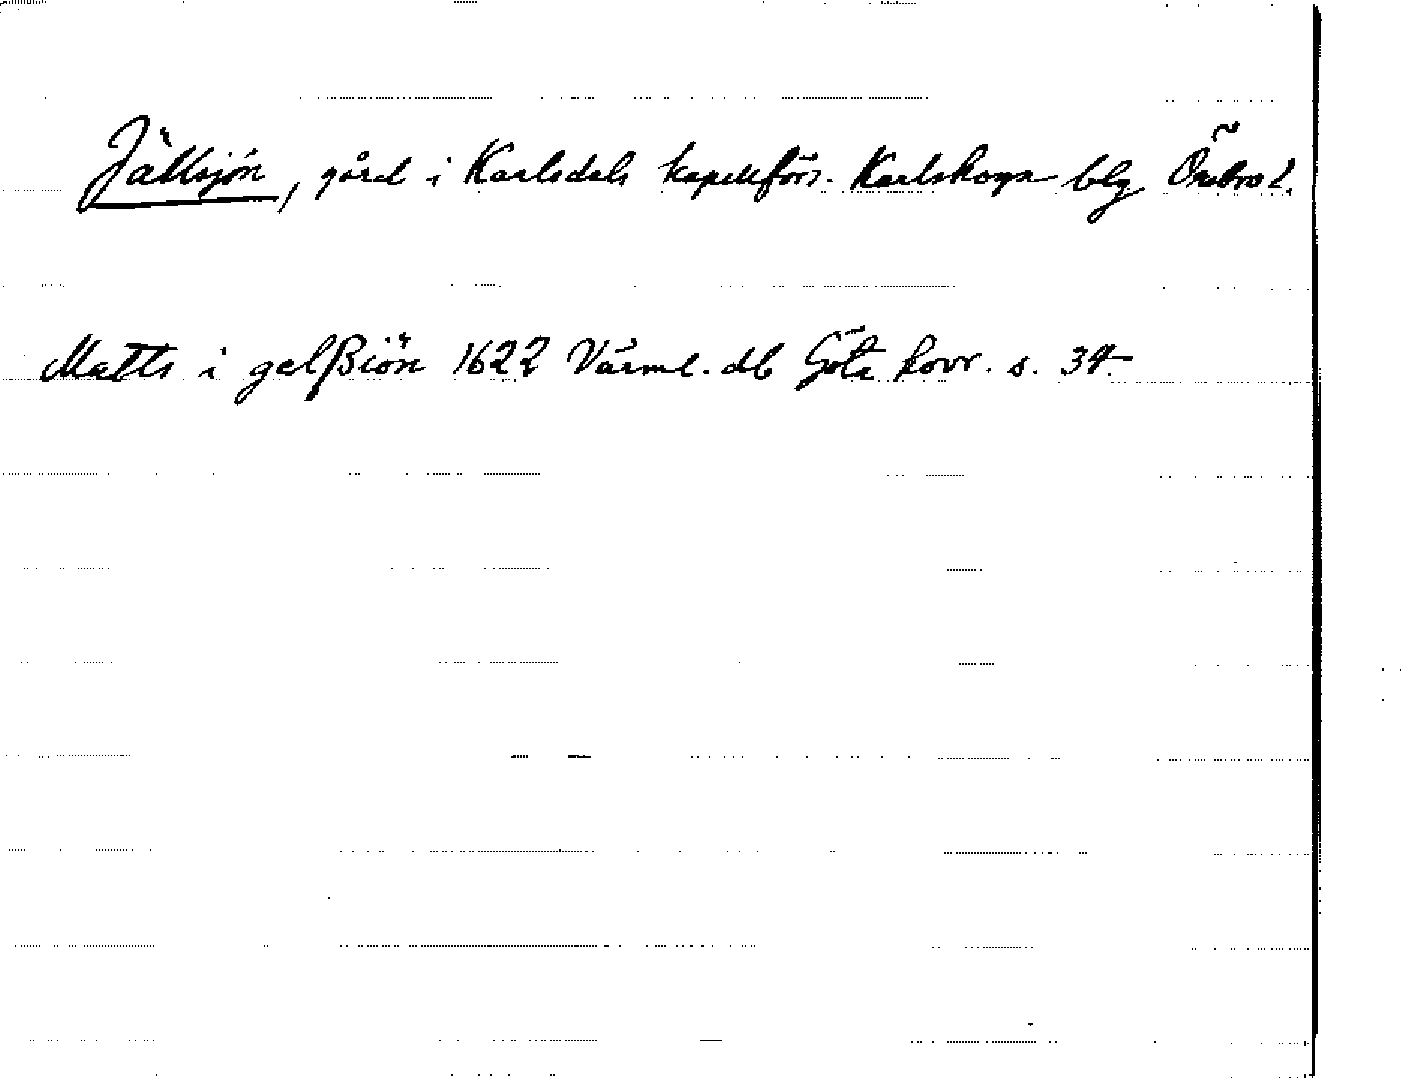 Jällsjön, gård i Karlsdals kapellförs. Karlskoga blg Örebro l.
Matts i gelßiön 1622 Värml. db Göta hovr. s. 34.